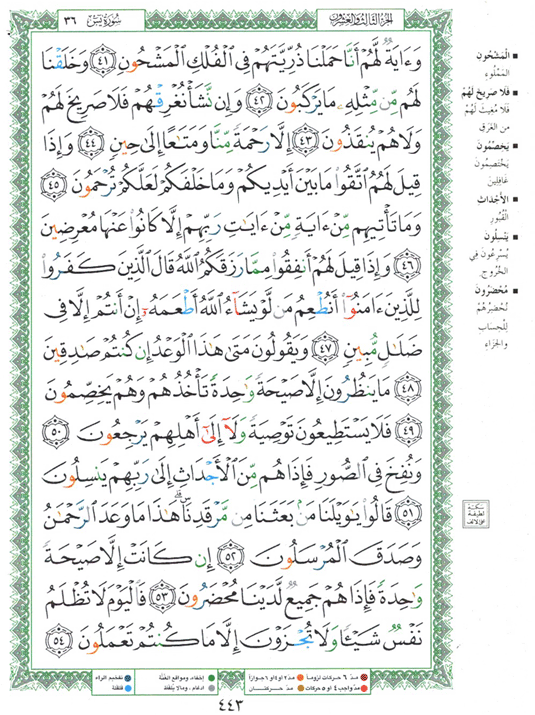 الجزء الثالث والعشرون
سورة يس ٣٦
وَءَايَةٌ لَّهُمْ أَنَّا حَمَلْنَا ذُرِّيَّتَهُمْ فِى ٱلْفُلْكِ ٱلْمَشْحُونِ ٤١ وَخَلَقْنَا
لَهُم مِّن مِّثْلِهِۦ مَا يَرْكَبُونَ ٤٢ وَإِن نَّشَأْ نُغْرِقْهُمْ فَلَا صَرِيخَ لَهُمْ
وَلَا هُمْ يُنقَذُونَ ٤٣ إِلَّا رَحْمَةً مِّنَّا وَمَتَـٰعًا إِلَىٰ حِينٍ ٤٤ وَإِذَا
قِيلَ لَهُمُ ٱتَّقُوا۟ مَا بَيْنَ أَيْدِيكُمْ وَمَا خَلْفَكُمْ لَعَلَّكُمْ تُرْحَمُونَ ٤٥
وَمَا تَأْتِيهِم مِّنْ ءَايَةٍ مِّنْ ءَايَـٰتِ رَبِّهِمْ إِلَّا كَانُوا۟ عَنْهَا مُعْرِضِينَ
٤٦ وَإِذَا قِيلَ لَهُمْ أَنفِقُوا۟ مِمَّا رَزَقَكُمُ ٱللَّهُ قَالَ ٱلَّذِينَ كَفَرُوا۟
لِلَّذِينَ ءَامَنُوٓا۟ أَنُطْعِمُ مَن لَّوْ يَشَآءُ ٱللَّهُ أَطْعَمَهُۥٓ إِنْ أَنتُمْ إِلَّا فِى
ضَلَـٰلٍ مُّبِينٍ ٤٧ وَيَقُولُونَ مَتَىٰ هَـٰذَا ٱلْوَعْدُ إِن كُنتُمْ صَـٰدِقِينَ
٤٨ مَا يَنظُرُونَ إِلَّا صَيْحَةً وَٰحِدَةً تَأْخُذُهُمْ وَهُمْ يَخِصِّمُونَ
٤٩ فَلَا يَسْتَطِيعُونَ تَوْصِيَةً وَلَآ إِلَىٰٓ أَهْلِهِمْ يَرْجِعُونَ ٥٠
وَنُفِخَ فِى ٱلصُّورِ فَإِذَا هُم مِّنَ ٱلْأَجْدَاثِ إِلَىٰ رَبِّهِمْ يَنسِلُونَ
٥١ قَالُوا۟ يَـٰوَيْلَنَا مَنۢ بَعَثَنَا مِن مَّرْقَدِنَا ۜ ۗ هَـٰذَا مَا وَعَدَ ٱلرَّحْمَـٰنُ
وَصَدَقَ ٱلْمُرْسَلُونَ ٥٢ إِن كَانَتْ إِلَّا صَيْحَةً
وَٰحِدَةً فَإِذَا هُمْ جَمِيعٌ لَّدَيْنَا مُحْضَرُونَ ٥٣ فَٱلْيَوْمَ لَا تُظْلَمُ
نَفْسٌ شَيْـًٔا وَلَا تُجْزَوْنَ إِلَّا مَا كُنتُمْ تَعْمَلُونَ ٥٤
الْمَشْحُونِ
المَمْلُوءِ
فَلَا صَرِيخَ لَهُمْ
فَلَا مُغِيثَ لَهُمْ
من الغَرَقِ
يَخِصِّمُونَ
يَخْتَصِمُونَ
غَافِلِينَ
الأَجْدَاثِ
القُبُورِ
يَنْسِلُونَ
يُسْرِعُونَ فِي
الخُرُوجِ
مُحْضَرُونَ
نُحْضِرُهُمْ
لِلْحِسابِ
والجَزَاءِ
سكتة
لطيفة
مدّ ٦ حركات لزوماً
مدّ ٢ أو ٤ أو ٦ جوازاً
إخفاء، ومواقع الغنّة
تفخيم الراء
مدّ واجب ٤ أو ٥ حركات
مدّ حركتان
إدغام، وما لا يُلفظ
قلقلة
٤٤٣